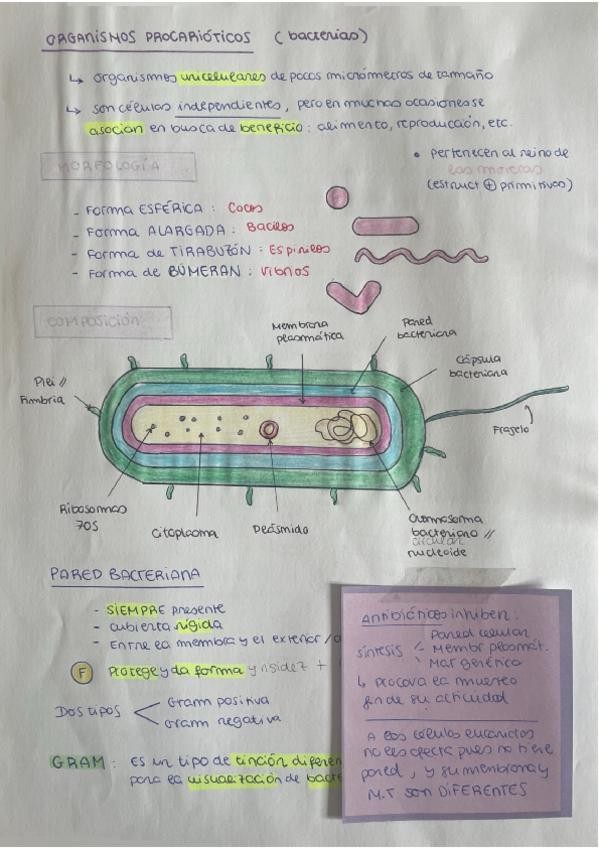 ORGANISMOS PROCARIÓTICOS (bacterias)
↳ organismos unicelulares de pocos micrómetros de tamaño
↳ son células independientes, pero en muchas ocasiones se
asocian en busca de beneficio: alimento, reproducción, etc.
• pertenecen al reino de
las moneras
(estruct ⊕ primitivos)
MORFOLOGÍA
- Forma ESFÉRICA : Cocos
- Forma ALARGADA : Bacilos
- Forma de TIRABUZÓN : Espirilos
- Forma de BÚMERAN : Vibrios
COMPOSICIÓN
Membrana plasmática
Pared bacteriana
Cápsula bacteriana
Pili //
Fimbria
Flagelo
Ribosomas
70S
Citoplasma
Plásmido
Cromosoma
bacteriano //
circular
nucleoide
PARED BACTERIANA
- SIEMPRE presente
- cubierta rígida
- Entre la membra y el exterior /
F Protege y da forma y rigidez +
Dos tipos < Gram positiva
Gram negativa
GRAM : Es un tipo de tinción diferen
para la visualización de bact
Antibióticos inhiben:
síntesis < Pared celular
Membr plasmát.
Mat genético
↳ provoca la muerte o
fin de su actividad
A las células eucariotas
no les afecta pues no tiene
pared, y su membrana y
M.T son DIFERENTES